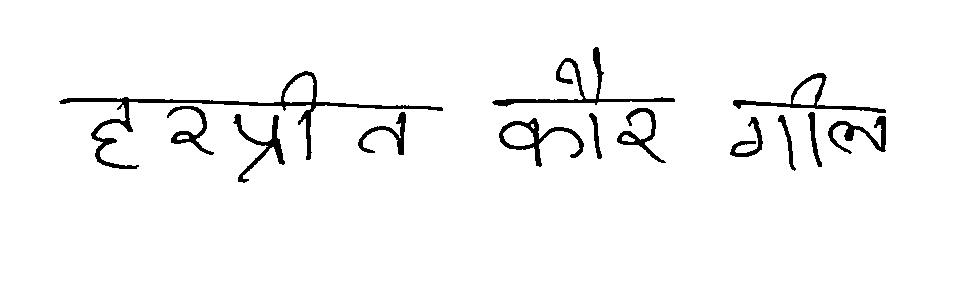 हरप्रीत कौर गील